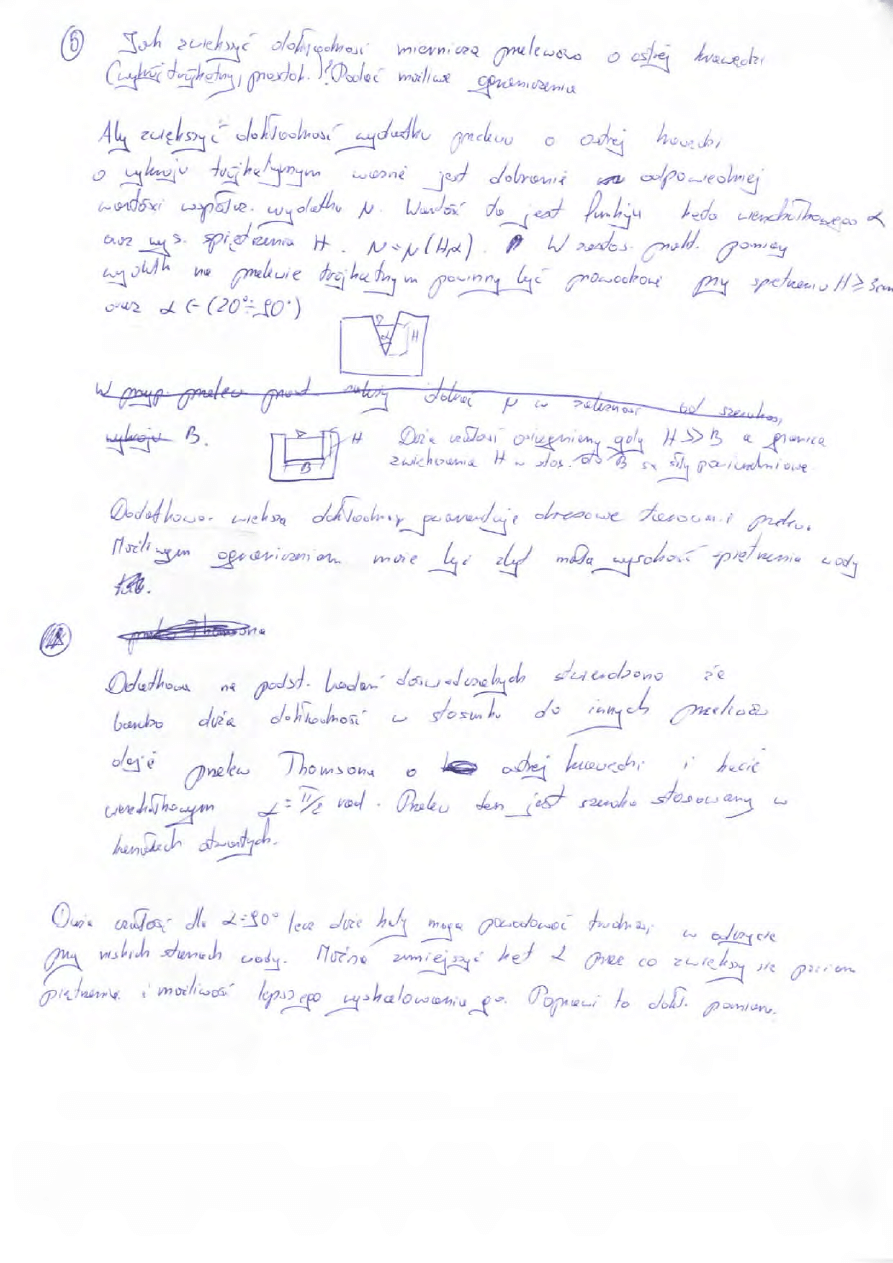 5 Jak zwiększyć dokładność miernicza przelewów o ostrej krawędzi
(wykrój trójkątny, prostok.)? Podać możliwe ograniczenia
Aby zwiększyć dokładność wydatku przelewu o ostrej krawędzi
o wykroju trójkątnym ważne jest dobranie odpowiedniej
wartości współcz. wydatku μ. Wartość ta jest funkcją kąta wierzchołkowego α
oraz wys. spiętrzenia H. μ=μ(H,α). W zastos. prakt. pomiary
wydatku na przelewie trójkątnym powinny być prowadzone przy spiętrzeniu H ≥ 5cm
oraz α ∈ (20°÷90°)
α H
W przyp. przelewu prost. należy dobrać μ w zależności od szerokości
wykroju B.
B H Duża czułość osiągniemy gdy H >> B a granica
zwiększania H w stos. do B są siły powierzchniowe
Dodatkowo większą dokładność gwarantuje okresowe tarowanie przelewu.
Możliwym ograniczeniem może być zbyt mała wysokość spiętrzenia wody
Dodatkowo na podst. badań doświadczalnych stwierdzono że
bardzo duża dokładność w stosunku do innych przelewów
daje przelew Thomsona o ostrej krawędzi i kącie
wierzchołkowym α = π/2 rad. Przelew ten jest szeroko stosowany w
kanałach otwartych.
Duża czułość dla α=90° lecz duże kąty mogą powodować trudności w odczycie
przy niskich stanach wody. Można zmniejszyć kąt α przez co zwiększy się poziom
piętrzenia i możliwość lepszego wyskalowania go. Poprawi to dokł. pomiaru.